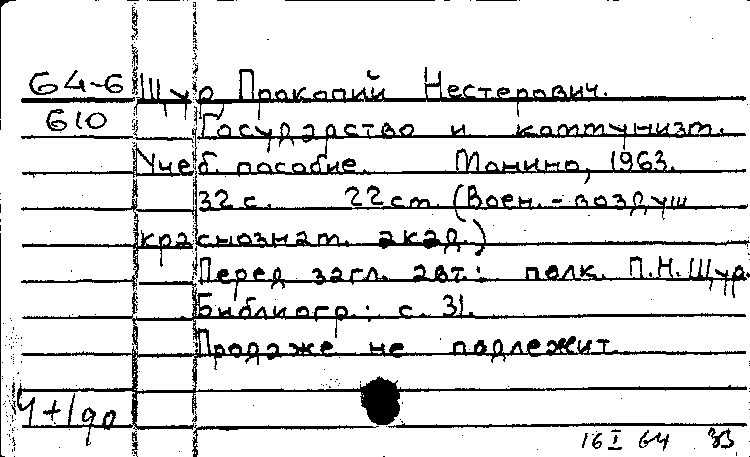 64-6 Щур, Прокопий Нестерович.
610 Государство и коммунизм.
Учеб. пособие. Монино, 1963.
32 с. 22 см. (Воен.-воздуш
краснознам. акад.)
Перед загл. авт.: полк. П.Н. Щур.
Библиогр.: с. 31.
Продаже не подлежит
16 I 64